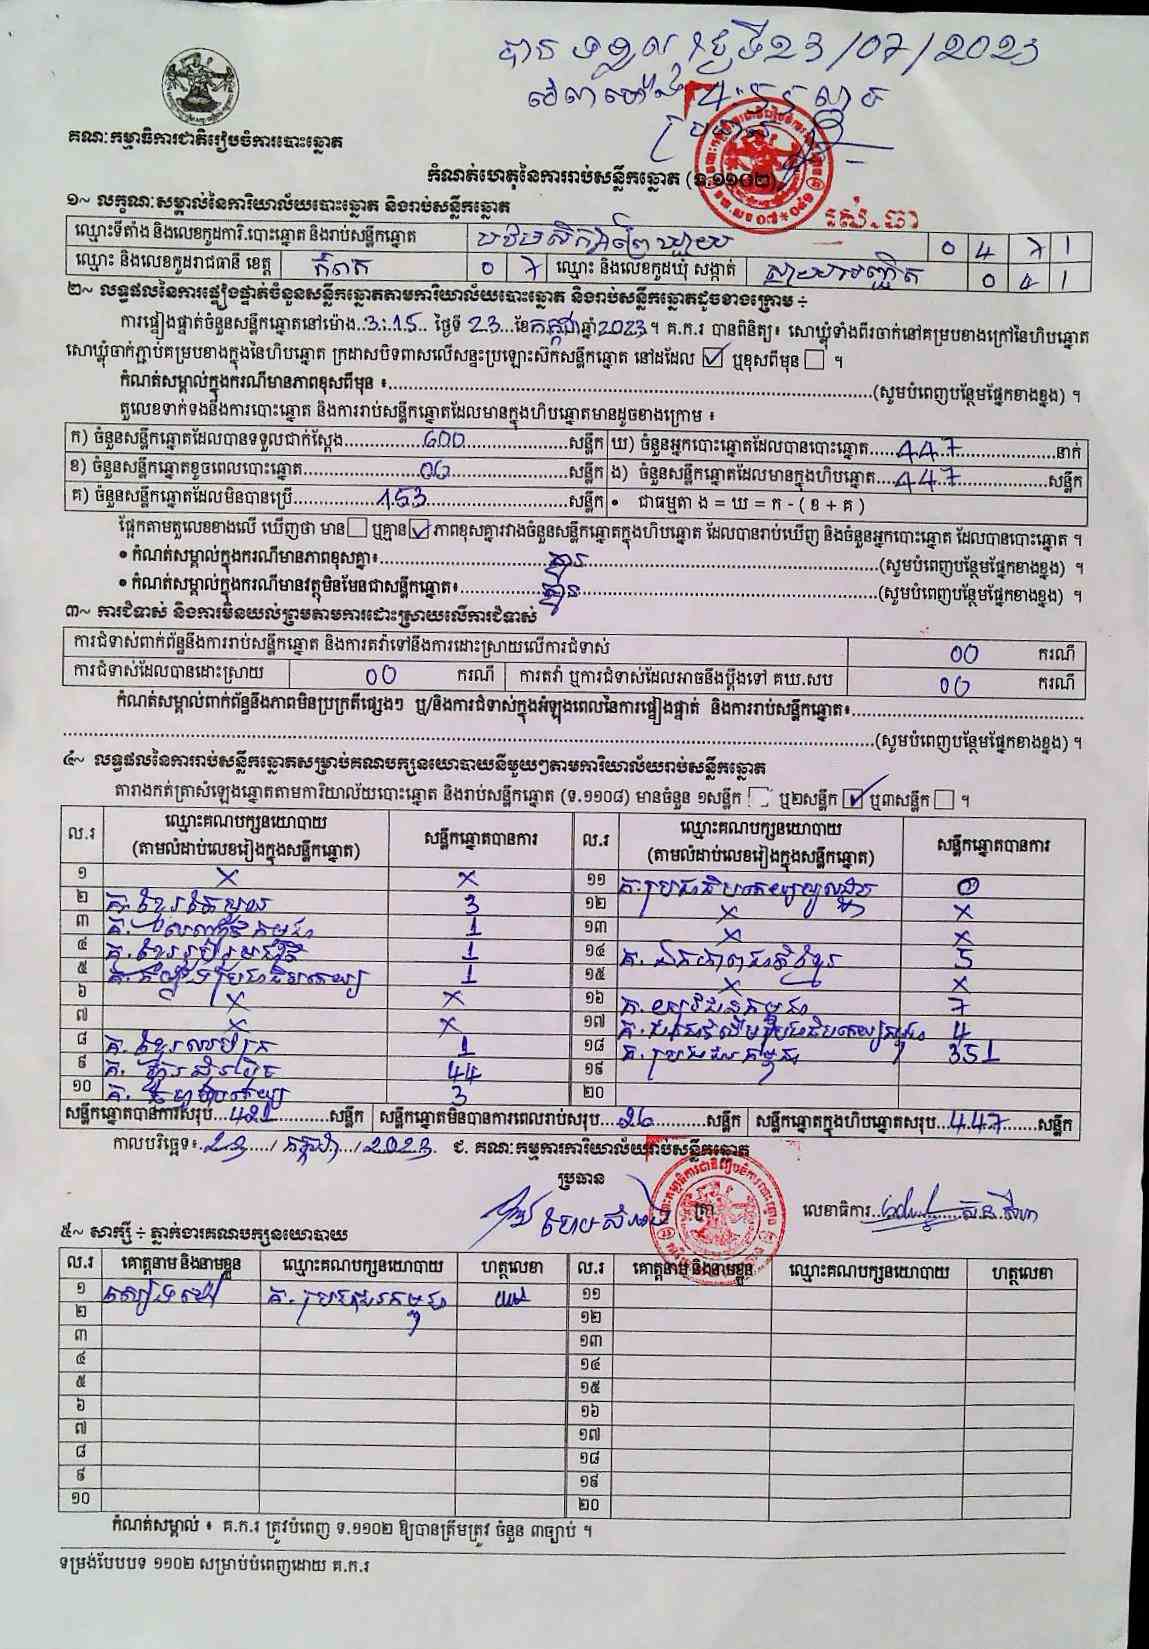 បានទទួល ថ្ងៃទី23/07/2023
វេលាម៉ោង 4:
ប្រធាន
គណៈកម្មាធិការជាតិរៀបចំការបោះឆ្នោត
កំណត់ហេតុនៃការរាប់សន្លឹកឆ្នោត (ទ.១១០២)
១~ លក្ខណៈសម្គាល់នៃការិយាល័យបោះឆ្នោត និងរាប់សន្លឹកឆ្នោត
ឈ្មោះទីតាំង និងលេខកូដការិ.បោះឆ្នោត និងរាប់សន្លឹកឆ្នោត 0 4 7 1
ឈ្មោះ និងលេខកូដរាជធានី ខេត្ត កំពត 0 7 ឈ្មោះ និងលេខកូដឃុំ សង្កាត់ 0 4 1
២~ លទ្ធផលនៃការផ្ទៀងផ្ទាត់ចំនួនសន្លឹកឆ្នោតតាមការិយាល័យបោះឆ្នោត និងរាប់សន្លឹកឆ្នោតដូចខាងក្រោម ÷
ការផ្ទៀងផ្ទាត់ចំនួនសន្លឹកឆ្នោតនៅម៉ោង..3:15.. ថ្ងៃទី 23...ខែកក្កដាឆ្នាំ2023។ គ.ក.រ បានពិនិត្យ៖ សោឃ្លុំទាំងពីរចាក់នៅគម្របខាងក្រៅនៃហិបឆ្នោត
សោឃ្លុំចាក់ភ្ជាប់គម្របខាងក្នុងនៃហិបឆ្នោត ក្រដាសបិទពាសលើសន្ទះប្រឡោះស៊កសន្លឹកឆ្នោត នៅដដែល ☑ ឬខុសពីមុន ☐ ។
កំណត់សម្គាល់ក្នុងករណីមានភាពខុសពីមុន ៖..........(សូមបំពេញបន្ថែមផ្នែកខាងខ្នង) ។
តួលេខទាក់ទងនឹងការបោះឆ្នោត និងការរាប់សន្លឹកឆ្នោតដែលមានក្នុងហិបឆ្នោតមានដូចខាងក្រោម ៖
ក) ចំនួនសន្លឹកឆ្នោតដែលបានទទួលជាក់ស្តែង.......600.......សន្លឹក ឃ) ចំនួនអ្នកបោះឆ្នោតដែលបានបោះឆ្នោត.....447.......នាក់
ខ) ចំនួនសន្លឹកឆ្នោតខូចពេលបោះឆ្នោត.......00.......សន្លឹក ង) ចំនួនសន្លឹកឆ្នោតដែលមានក្នុងហិបឆ្នោត...447.......សន្លឹក
គ) ចំនួនសន្លឹកឆ្នោតដែលមិនបានប្រើ.......153.......សន្លឹក • ជាធម្មតា ង = ឃ = ក - ( ខ + គ )
ផ្អែកតាមតួលេខខាងលើ ឃើញថា មាន ☐ ឬគ្មាន ☑ ភាពខុសគ្នារវាងចំនួនសន្លឹកឆ្នោតក្នុងហិបឆ្នោត ដែលបានរាប់ឃើញ និងចំនួនអ្នកបោះឆ្នោត ដែលបានបោះឆ្នោត ។
• កំណត់សម្គាល់ក្នុងករណីមានភាពខុសគ្នា៖.......គ្មាន.......(សូមបំពេញបន្ថែមផ្នែកខាងខ្នង) ។
• កំណត់សម្គាល់ក្នុងករណីមានវត្ថុមិនមែនជាសន្លឹកឆ្នោត៖.......គ្មាន.......(សូមបំពេញបន្ថែមផ្នែកខាងខ្នង) ។
៣~ ការជំទាស់ និងការមិនយល់ព្រមតាមការដោះស្រាយលើការជំទាស់
ការជំទាស់ពាក់ព័ន្ធនឹងការរាប់សន្លឹកឆ្នោត និងការតវ៉ាទៅនឹងការដោះស្រាយលើការជំទាស់ 00 ករណី
ការជំទាស់ដែលបានដោះស្រាយ 00 ករណី ការតវ៉ា ឬការជំទាស់ដែលអាចនឹងប្តឹងទៅ គឃ.សប 00 ករណី
កំណត់សម្គាល់ពាក់ព័ន្ធនឹងភាពមិនប្រក្រតីផ្សេងៗ ឬ/និងការជំទាស់ក្នុងអំឡុងពេលនៃការផ្ទៀងផ្ទាត់ និងការរាប់សន្លឹកឆ្នោត៖..........
..........(សូមបំពេញបន្ថែមផ្នែកខាងខ្នង) ។
៤~ លទ្ធផលនៃការរាប់សន្លឹកឆ្នោតសម្រាប់គណបក្សនយោបាយនីមួយៗតាមការិយាល័យរាប់សន្លឹកឆ្នោត
តារាងកត់ត្រាសំឡេងឆ្នោតតាមការិយាល័យបោះឆ្នោត និងរាប់សន្លឹកឆ្នោត (ទ.១១០៨) មានចំនួន ១សន្លឹក ☐ ឬ២សន្លឹក ☑ ឬ៣សន្លឹក ☐ ។
ល.រ ឈ្មោះគណបក្សនយោបាយ (តាមលំដាប់លេខរៀងក្នុងសន្លឹកឆ្នោត) សន្លឹកឆ្នោតបានការ ល.រ ឈ្មោះគណបក្សនយោបាយ (តាមលំដាប់លេខរៀងក្នុងសន្លឹកឆ្នោត) សន្លឹកឆ្នោតបានការ
១ x x ១១ គ. 0
២ គ.ខ្មែរតែមួយ 3 ១២ x x
៣ គ. 1 ១៣ x x
៤ គ.ខ្មែររួបរួមជាតិ 1 ១៤ គ.ឯកភាពជាតិខ្មែរ 5
៥ គ.កម្លាំងប្រជាធិបតេយ្យ 1 ១៥ x x
៦ x x ១៦ គ.យុវជនកម្ពុជា 7
៧ x x ១៧ គ. 4
៨ គ. 1 ១៨ គ.ប្រជាជនកម្ពុជា 351
៩ គ.ហ៊្វុនស៊ិនប៉ិច 44 ១៩
១០ គ. 3 ២០
សន្លឹកឆ្នោតបានការសរុប...421.......សន្លឹក សន្លឹកឆ្នោតមិនបានការពេលរាប់សរុប...26.......សន្លឹក សន្លឹកឆ្នោតក្នុងហិបឆ្នោតសរុប..447.....សន្លឹក
កាលបរិច្ឆេទ៖..23..../កក្កដា..../2023. ជ. គណៈកម្មការការិយាល័យរាប់សន្លឹកឆ្នោត
ប្រធាន
ត្រា លេខាធិការ
៥~ សាក្សី ÷ ភ្នាក់ងារគណបក្សនយោបាយ
ល.រ គោត្តនាម និងនាមខ្លួន ឈ្មោះគណបក្សនយោបាយ ហត្ថលេខា ល.រ គោត្តនាម និងនាមខ្លួន ឈ្មោះគណបក្សនយោបាយ ហត្ថលេខា
១ គ.ប្រជាជនកម្ពុជា ១១
២ ១២
៣ ១៣
៤ ១៤
៥ ១៥
៦ ១៦
៧ ១៧
៨ ១៨
៩ ១៩
១០ ២០
កំណត់សម្គាល់ ៖ គ.ក.រ ត្រូវបំពេញ ទ.១១០២ ឱ្យបានត្រឹមត្រូវ ចំនួន ៣ច្បាប់ ។
ទម្រង់បែបបទ ១១០២ សម្រាប់បំពេញដោយ គ.ក.រ